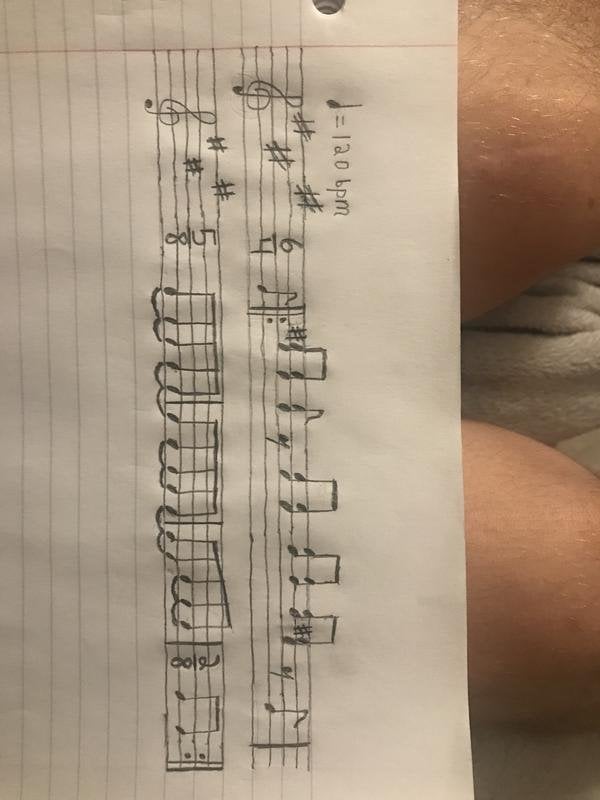 ♩=120 bpm
6
4
5
8
2
8